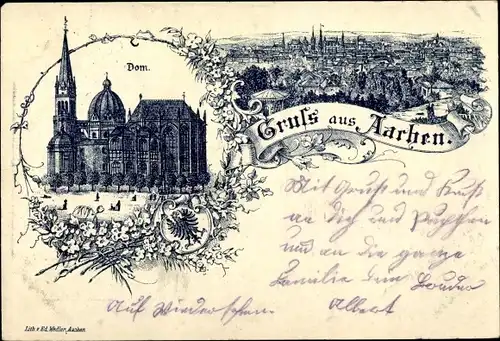 Dom.
Gruss aus Aachen.
Mit Gruss und Kuss
an Dich und
und an die ganze
Familie Dein Bruder
Auf Wiedersehen. Albert
Lith. v. Ed. Wedler, Aachen.